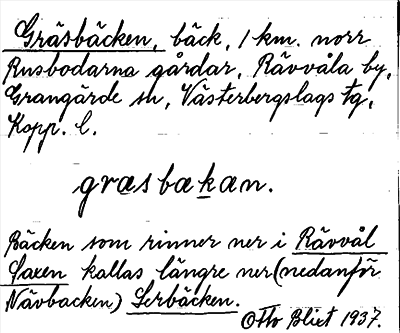 Gräsbäcken, bäck, 1 km. norr
Rusbodarna gårdar, Rävvåla by,
Grangärde sn, Västerbergslags tg,
Kopp. l.
græsbakan.
Bäcken som rinner ner i Rävvål
Saxen kallas längre ner (nedanför
Nävbacken) Serbäcken.
Otto Blixt 1937.